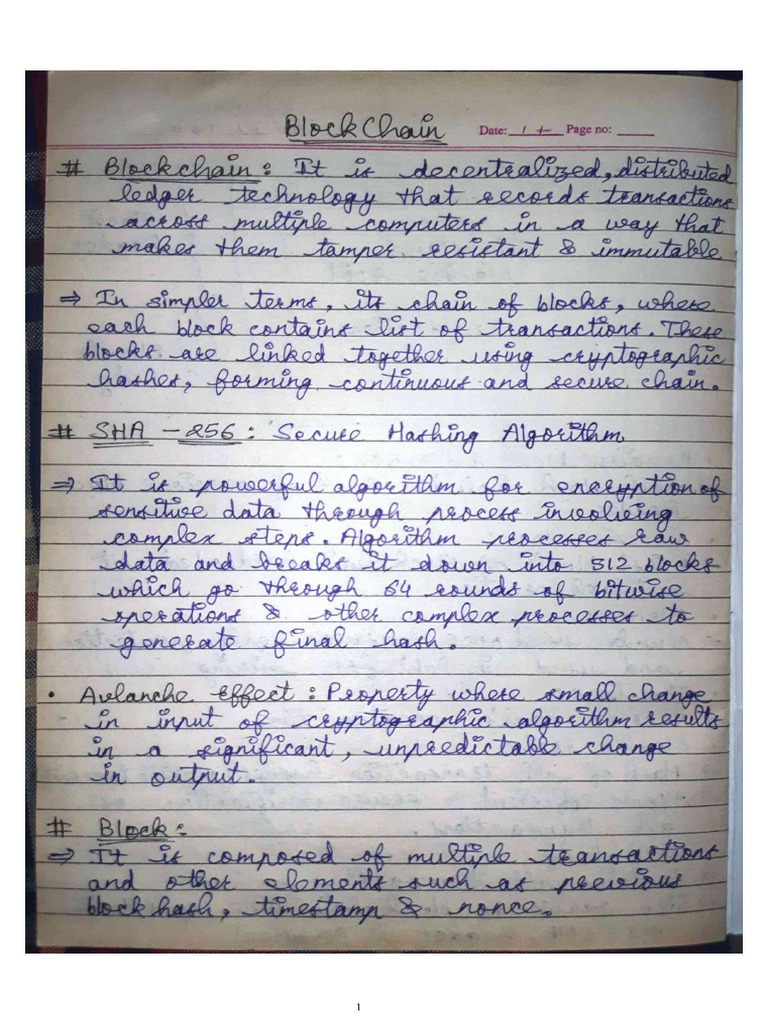 BlockChain Date: / / Page no:
# Blockchain : It is decentralized, distributed
ledger technology that records transactions
across multiple computers in a way that
makes them tamper resistant & immutable
⇒ In simpler terms, its chain of blocks, where
each block contains list of transactions. These
blocks are linked together using cryptographic
hashes, forming continuous and secure chain.
# SHA - 256 : Secure Hashing Algorithm
⇒ It is powerful algorithm for encryption of
sensitive data through process involving
complex steps. Algorithm processes raw
data and breaks it down into 512 blocks
which go through 64 rounds of bitwise
operations & other complex processes to
generate final hash.
• Avalanche Effect : Property where small change
in input of cryptographic algorithm results
in a significant, unpredictable change
in output.
# Block :
⇒ It is composed of multiple transactions
and other elements such as previous
block hash, timestamp & nonce.
1